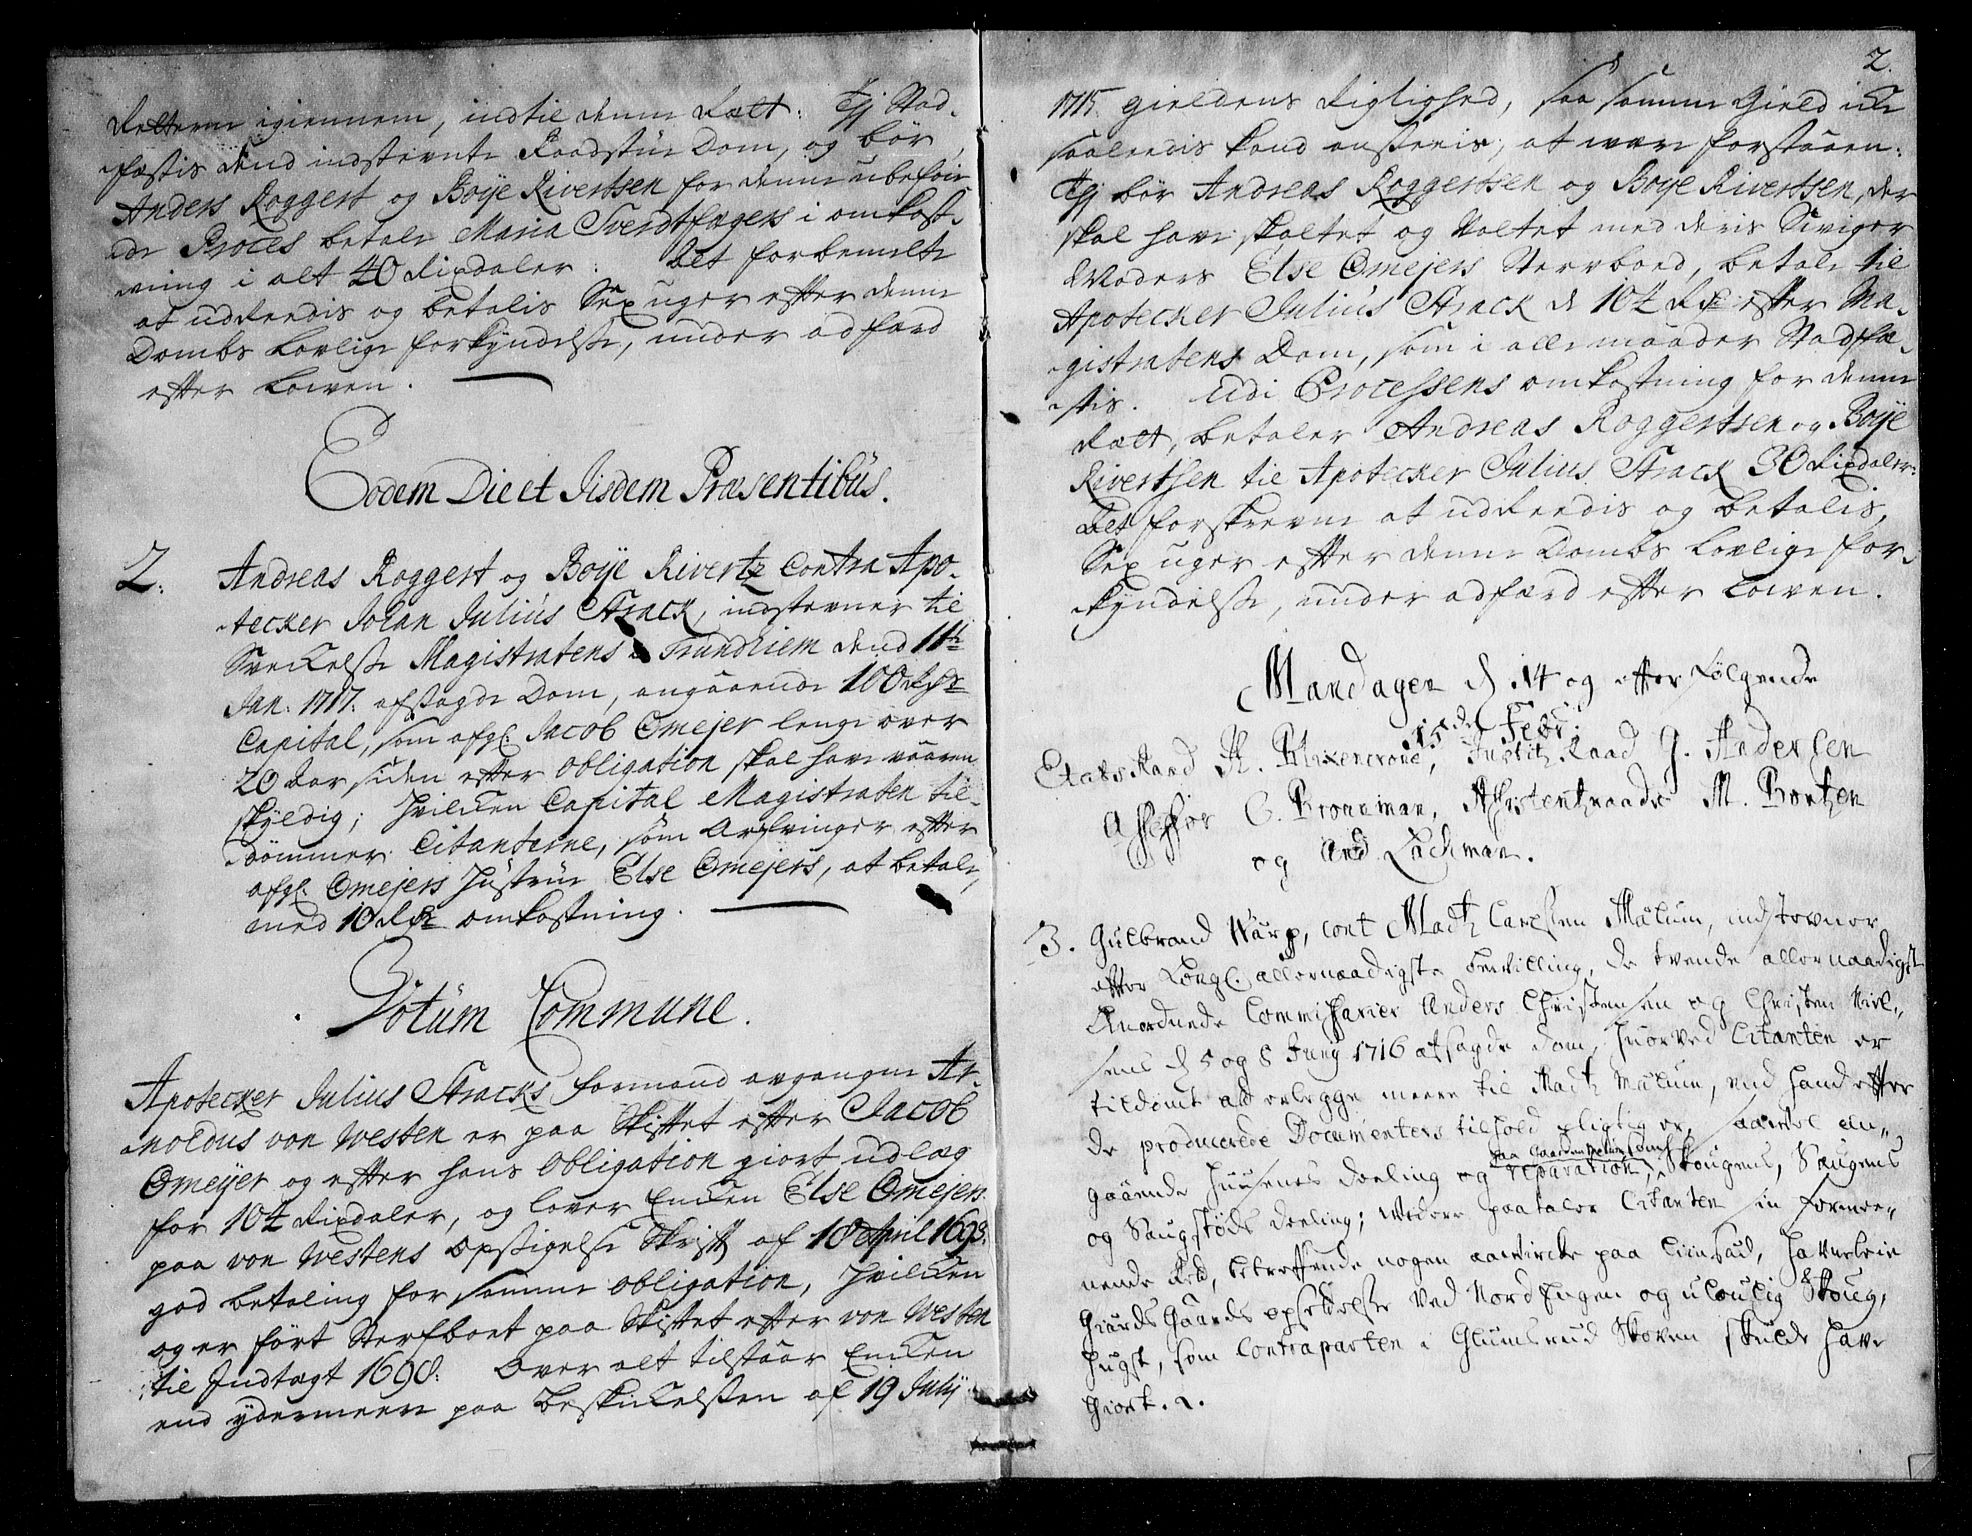 Retterne igiennem, indtil denne Rætt: Thj Stad-
fæstis dend indstevnte Raadstue Dom, og bør
Anders Roggert og Boÿe Rivertsen for denne ubeføie
de Proces betale Maria Sverdtfegers i omkost-
ning i alt 40 Rixdaler. Det forbemelte
at udreedis og betalis Sex uger efter denne
Dombs Lovlige forkyndelse, under adfærd
efter Lowen.
Eodem Die et Iisdem Præsentibüs.
2. Andreas Roggert og Boÿe Rivertz Contra Apo-
tecker Johan Julius Strack, indstevner til
Sveckelse Magistratens i Trundhiem dend 11te
Jan. 1717. afsagde Dom, angaaende 100 Rdr
Capital, som afgl. Jacob Omejer lenge over
20 Aar siden efter Obligation skal have vaaren
skÿldig; hvilcken Capital Magistraten til-
dømmer Citanterne, som Arfvinger efter
afgl. Omejers Hustrue Else Omejers, at betale,
med 10 Rdr omkostning.
Votüm Commune.
Apotecker Julius Stracks formand avgangne Ar-
noldus von Westen er paa Skiftet efter Jacob
Omeÿer og efter hans Obligation giort udlæg
for 104 Rixdaler, og lover Encken Else Omejers
paa von Westens Opsigelse Skrift af 18 April 1698.
god betaling for samme Obligation, hvilcken
og er ført Sterfboet paa Skiftet efter von Westen
til Indtægt 1698. Over alt tilstaar Encken
end ÿdermeere paa Beskickelsen af 19 Julÿ
2.
1715. gieldens Rigtighed, saa samme Gield icke
saaledis kand ansees, at være forstaaen:
Thj bør Andreas Roggertsen og Boÿe Rivertsen, der
skal have skaltet og valtet med deris Sviger
Moders Else Omejers Stervboed, betale til
Apotecker Julius Strack de 104 Rdr efter Ma-
gistratens Dom, som i alle maader Stadfæ-
stis. Udi Processens omkostning for denne
Rætt, betaler Andreas Roggertsen og Boÿe
Rivertsen til Apotecker Julius Strack 30 Rixdaler.
Det forskrevne at udreedis og betalis,
Sex uger efter denne Dombs Lovlige for-
kyndelse, under adfærd efter Lowen.
Mandagen d. 14 og efterfølgende
15de Febr.
Etats Raad A. Blixencrone, Justitz Raad J. Andersen
Assessor C. Broneman, Assistentzraad M. Bontzen
og And Lachman.
3. Gulbrand Warp, cont Madtz Carlsen Mælum, indstevner
efter Kongl. allernaadigste bevilling, de tvende allernaadigst
Anordnede Commissarier Anders Christensen og Christen Niel-
sens d. 5 og 8 Junÿ 1716 afsagde dom, hvorved Citanten er
tildømt at erlegge meere til Madtz Mælum, end hand efter
de producerede Documenters tilhold pligtig er, saavel an-
gaaende Husenes deeling og reparation, paa Gaarden Mælum, Skougens, Saugens
og Saugstøds deeling; Videre paataler Citanten sin formee-
nende Ret, betreffende nogen aawircke paa
Giærds Gaards opsettelse ved Nord Engen og uloulig Skoug,
hugst, som Contraparten i Glumsrud Skoven skulde have
giort.